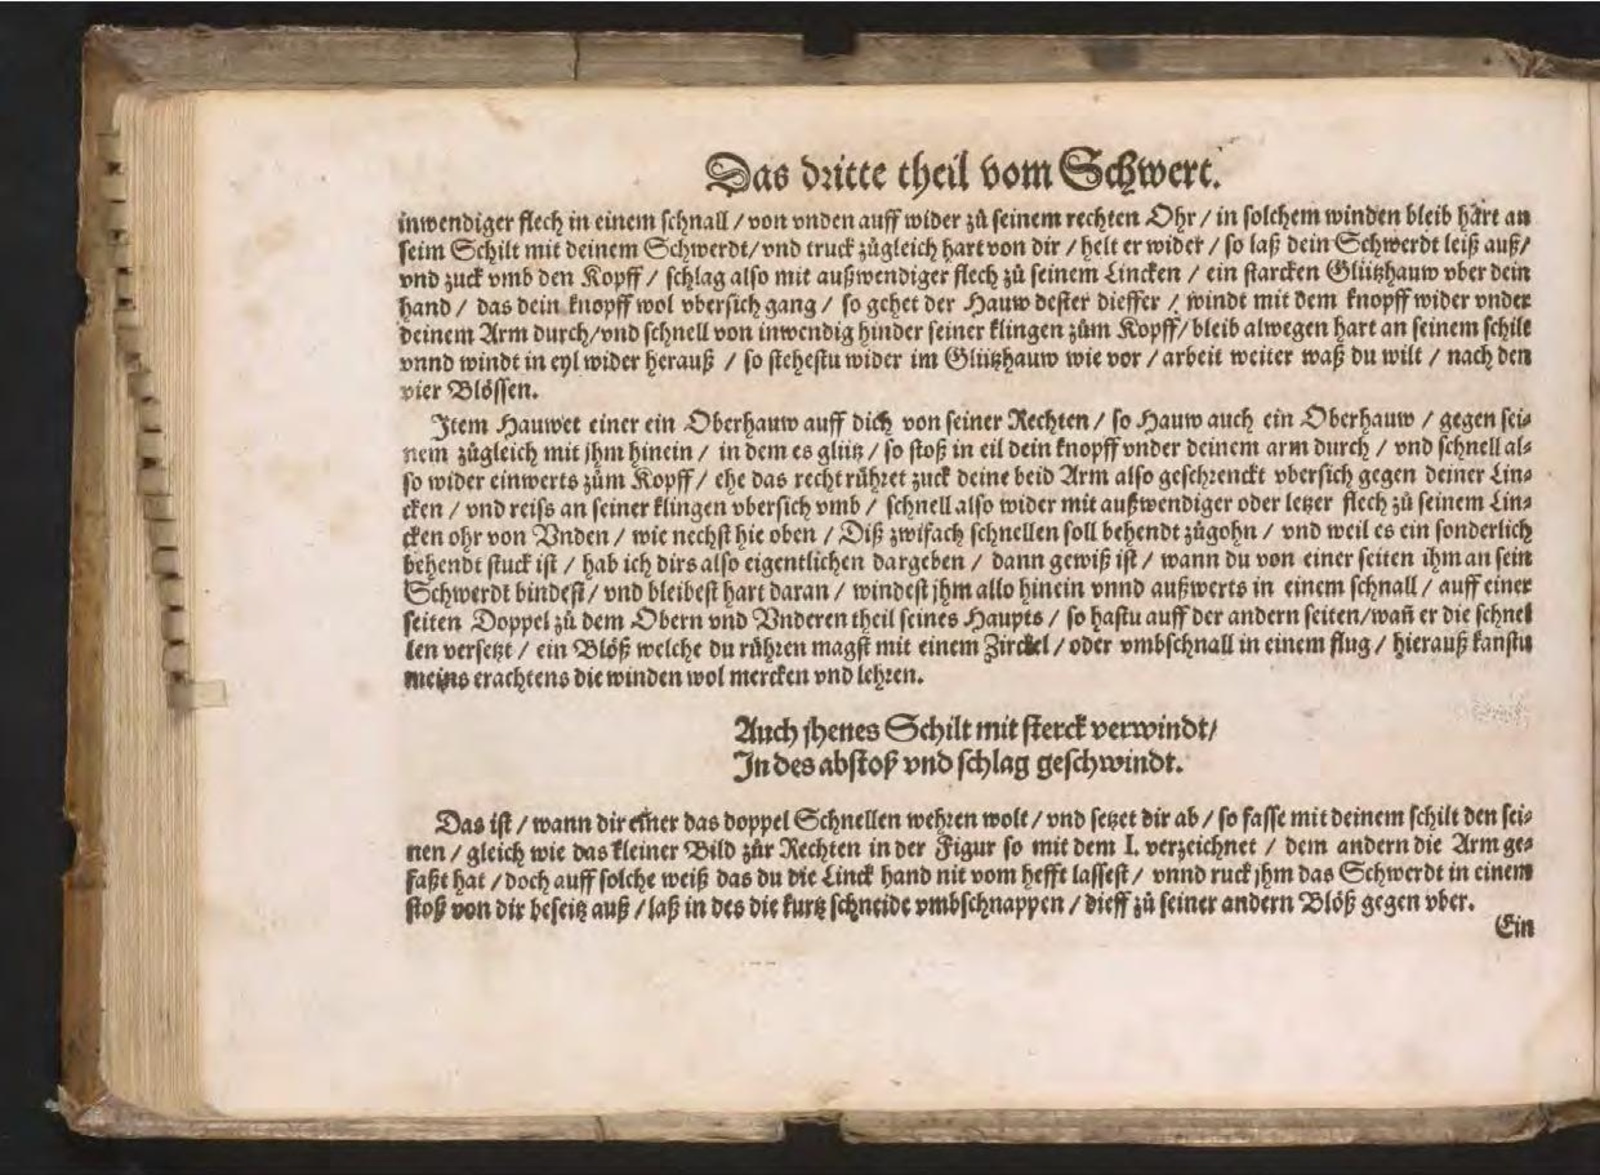 Das dritte theil vom Schwert.
inwendiger flech in einem schnall / von vnden auff wider zů seinem rechten Ohr / in solchem winden bleib hart an
seim Schilt mit deinem Schwerdt / vnd truck zůgleich hart von dir / helt er wider / so laß dein Schwerdt leiß auß /
vnd zuck vmb den Kopff / schlag also mit außwendiger flech zů seinem Lincken / ein starcken Glützhauw vber dein
hand / das dein knopff wol vbersich gang / so gehet der Hauw dester dieffer / windt mit dem knopff wider vnder
deinem Arm durch / vnd schnell von inwendig hinder seiner klingen zům Kopff / bleib alwegen hart an seinem schilt
vnnd windt in eyl wider herauß / so stehestu wider im Glützhauw wie vor / arbeit weiter waß du wilt / nach den
vier Blössen.
Item Hauwet einer ein Oberhauw auff dich von seiner Rechten / so Hauw auch ein Oberhauw / gegen sei-
nem zůgleich mit jhm hinein / in dem es glütz / so stoß in eil dein knopff vnder deinem arm durch / vnd schnell al-
so wider einwerts zům Kopff / ehe das recht rühret zuck deine beid Arm also geschrenckt vbersich gegen deiner Lin-
cken / vnd reiss an seiner klingen vbersich vmb / schnell also wider mit außwendiger oder letzer flech zů seinem Lin-
cken ohr von Vnden / wie nechst hie oben / Diß zwifach schnellen soll behendt zůgohn / vnd weil es ein sonderlich
behendt stuck ist / hab ich dirs also eigentlichen dargeben / dann gewiß ist / wann du von einer seiten ihm an sein
Schwerdt bindest / vnd bleibest hart daran / windest jhm allo hinein vnnd außwerts in einem schnall / auff einer
seiten Doppel zů dem Obern vnd Vnderen theil seines Haupts / so hastu auff der andern seiten / wañ er die schnel
len versetzt / ein Blöß welche du rühren magst mit einem Zirckel / oder vmbschnall in einem flug / hierauß kanstu
meins erachtens die winden wol mercken vnd lehren.
Auch jhenes Schilt mit sterck verwindt /
In des abstoß vnd schlag geschwindt.
Das ist / wann dir einer das doppel Schnellen wehren wolt / vnd setzet dir ab / so fasse mit deinem schilt den sei-
nen / gleich wie das kleiner Bild zůr Rechten in der Figur so mit dem I. verzeichnet / dem andern die Arm ge-
faßt hat / doch auff solche weiß das du die Linck hand nit vom hefft lassest / vnnd ruck jhm das Schwerdt in einem
stoß von dir beseitz auß / laß in des die kurtz schneide vmbschnappen / dieff zů seiner andern Blöß gegen vber.
Ein